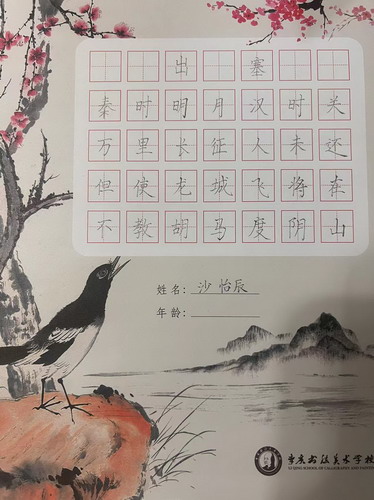 出塞
秦时明月汉时关
万里长征人未还
但使龙城飞将在
不教胡马度阴山
姓名：沙怡辰
年龄：
书法美术学校
QING SCHOOL OF CALLIGRAPHY AND